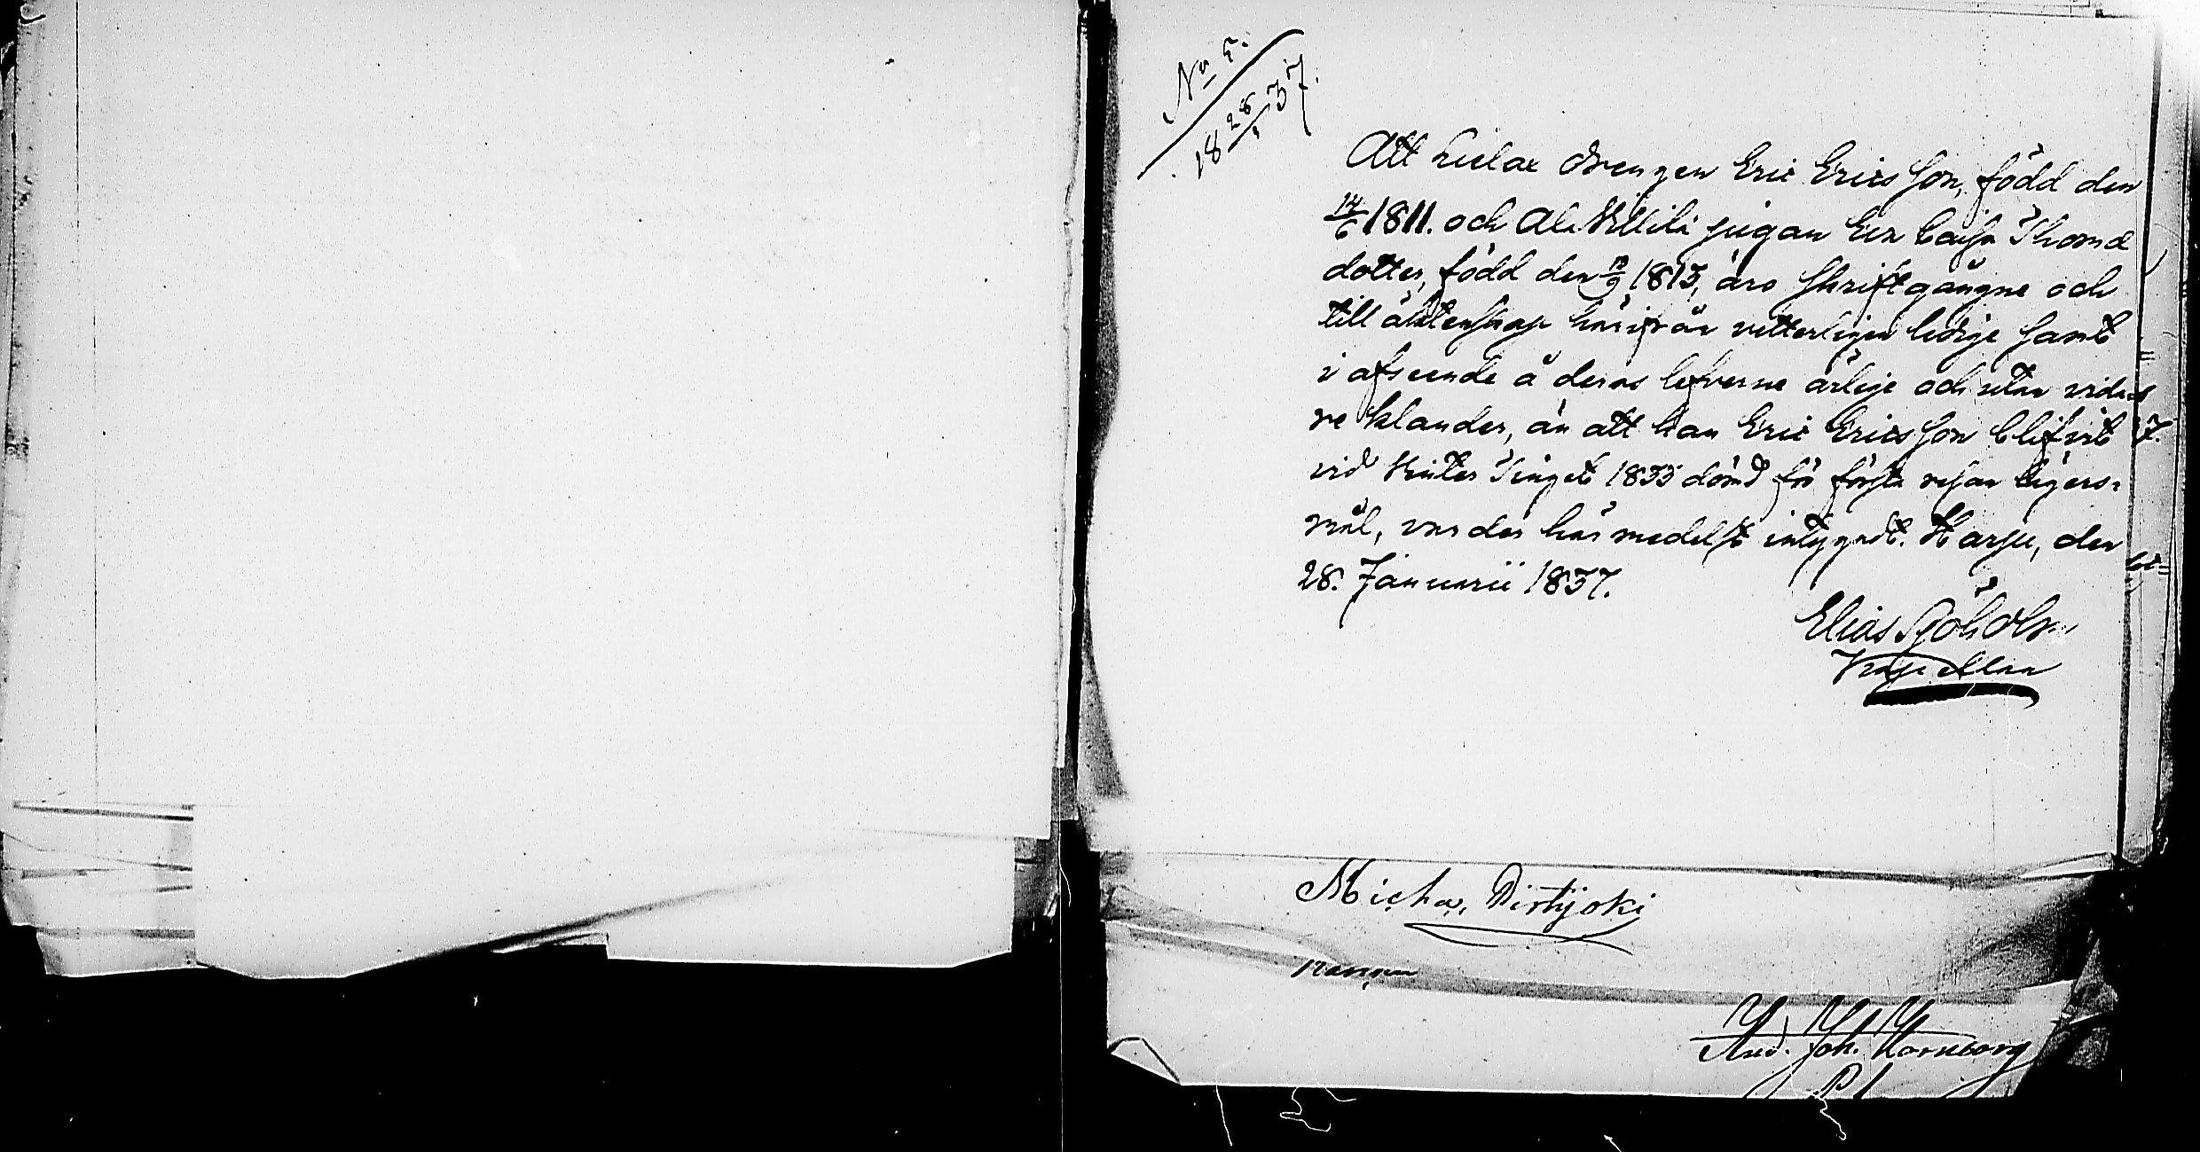 No 5.
18 28/1 37.
Att Lielax Drengen Eric Ericsson, född den
14/6 1811. och Ali Willili pigan Caisa Thomæ
dotter, född den 12/9 1813, äro skriftgångne och
till äktenskap härifrån vetterligen ledige samt
i afseende å deras lefverne ärlige och utan vida-
re klander, än att han Eric Ericsson blifvit
vid Vinter Tinget 1835 dömd för första resan lägers-
mål, varder härmedelst intygadt. Karju, den
28. Januarii 1837.
Elias Sjöholm
Kapellan
Micha, Pirtijoki
And. Joh. Hornborg